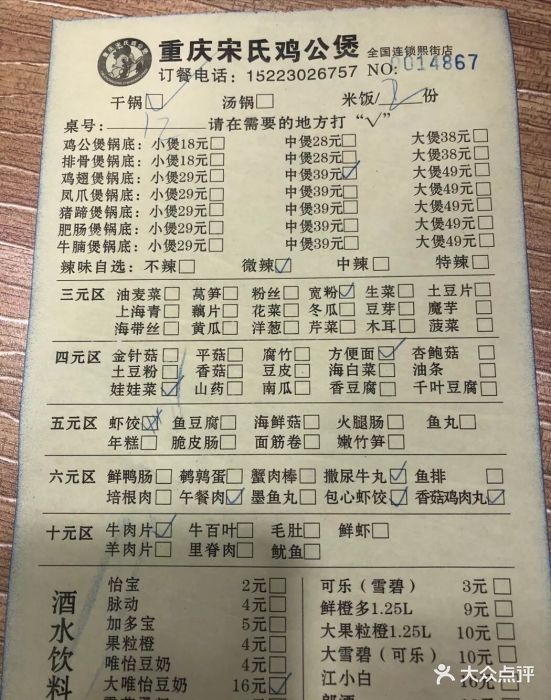 重庆宋氏鸡公煲 全国连锁熙街店
订餐电话：15223026757 NO:0014867
干锅☑ 汤锅□ 米饭/2份
桌号：12 请在需要的地方打“√”
鸡公煲锅底：小煲18元□ 中煲28元□ 大煲38元□
排骨煲锅底：小煲18元□ 中煲28元□ 大煲38元□
鸡翅煲锅底：小煲29元□ 中煲39元☑ 大煲49元□
凤爪煲锅底：小煲29元□ 中煲39元□ 大煲49元□
猪蹄煲锅底：小煲29元□ 中煲39元□ 大煲49元□
肥肠煲锅底：小煲29元□ 中煲39元□ 大煲49元□
牛腩煲锅底：小煲29元□ 中煲39元□ 大煲49元□
辣味自选：不辣□ 微辣☑ 中辣□ 特辣□
三元区 油麦菜□ 莴笋□ 粉丝□ 宽粉☑ 生菜□ 土豆片□
上海青□ 藕片□ 花菜□ 冬瓜□ 豆芽□ 魔芋□
海带丝□ 黄瓜□ 洋葱□ 芹菜□ 木耳□ 菠菜□
四元区 金针菇□ 平菇□ 腐竹□ 方便面☑ 杏鲍菇□
土豆粉□ 香菇□ 豆皮□ 海白菜□ 油条□
娃娃菜☑ 山药□ 南瓜□ 香豆腐□ 千叶豆腐□
五元区 虾饺☑ 鱼豆腐□ 海鲜菇□ 火腿肠□ 鱼丸□
年糕□ 脆皮肠□ 面筋卷□ 嫩竹笋□
六元区 鲜鸭肠□ 鹌鹑蛋□ 蟹肉棒□ 撒尿牛丸☑ 鱼排□
培根肉□ 午餐肉☑ 墨鱼丸□ 包心虾饺☑ 香菇鸡肉丸☑
十元区 牛肉片☑ 牛百叶□ 毛肚□ 鲜虾□
羊肉片□ 里脊肉□ 鱿鱼□
酒水饮料
怡宝 2元□ 可乐（雪碧） 3元□
脉动 4元□ 鲜橙多1.25L 9元□
加多宝 5元□ 大果粒橙1.25L 10元□
果粒橙 4元□ 大雪碧（可乐） 10元□
唯怡豆奶 4元□ 江小白
大唯怡豆奶 16元☑
大众点评